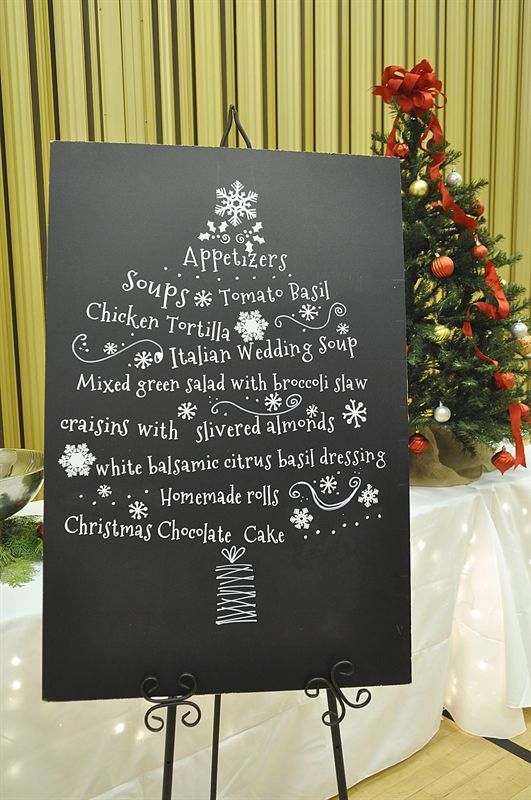 Appetizers
Soups Tomato Basil
Chicken Tortilla
Italian Wedding Soup
Mixed green salad with broccoli slaw
craisins with slivered almonds
white balsamic citrus basil dressing
Homemade rolls
Christmas Chocolate Cake